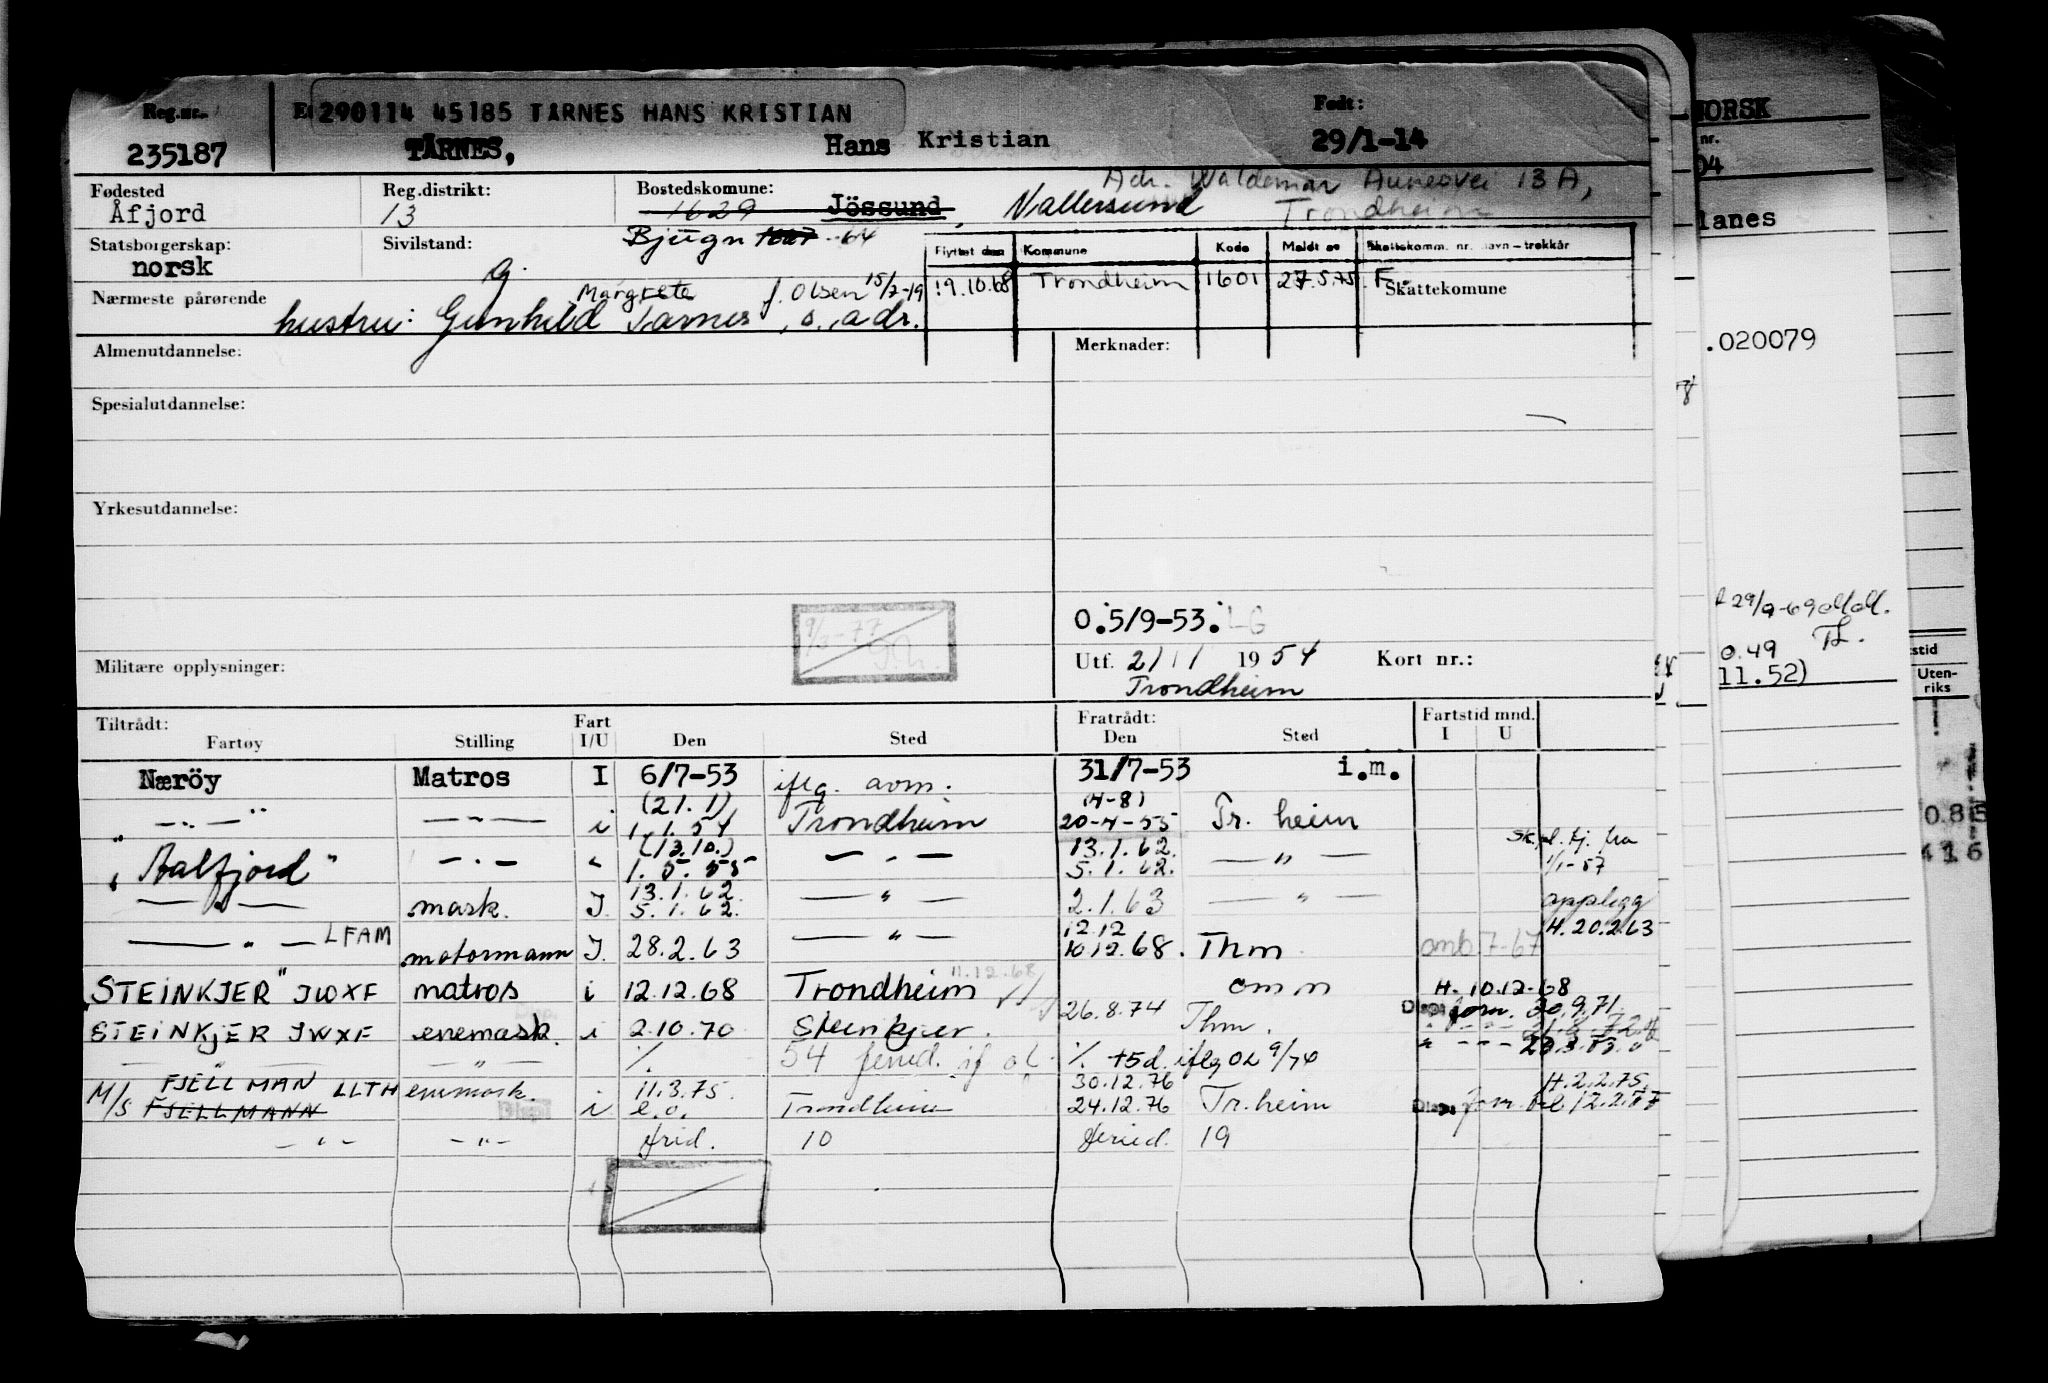 Reg.nr. E 290114 45185 TARNES HANS KRISTIAN Født:
235187 TÅRNES, Hans Kristian 29/1-14
Fødested Reg.distrikt: Bostedskomune: Adr. Waldemar Aunesvei 13 A,
Åfjord 13 1629 Jössund, Vallersund Trondheim
Statsborgerskap: Sivilstand: Bjugn 1627 -64
norsk g.
Flyttet den Kommune Kode Meldt av Skattekomm. nr. navn - trekkår
19.10.68 Trondheim 1601 27.5.75 F.
Nærmeste pårørende Margrete f. Olsen 15/7-19 Skattekomune
hustru: Gunhild Tårnes, s. adr.
Almenutdannelse: Merknader:
Spesialutdannelse:
Yrkesutdannelse:
9/3-77
O.5/9-53. LG
Militære opplysninger: Utf. 2/11 1954 Kort nr.:
Trondheim
Tiltrådt: Fart Fratrådt: Fartstid mnd.
Fartøy Stilling I/U Den Sted Den Sted I U
Næröy Matros I 6/7-53 iflg. avm. 31/7-53 i.m.
(21.1) (4-8)
" — " — " — " — i 1.1.54 Trondheim 20-4-55 Tr. heim
(13.10.) 13.1.62. Sk.pl. tj. fra
"Aalfjord" — " — 1.5.55 — " — 5.1.62. — " — 1/1-57
13.1.62
— " — mask. I. 5.1.62. — " — 2.1.63 — " — opplegg
12.12 H.20.2.63
— " — LFAM motormann I. 28.2.63 — " — 10.12.68. Thm omb 7-67
11.12.68
"STEINKJER" JWXF matros i 12.12.68 Trondheim omm H. 10.12-68
STEINKJER JWXF enemask. i 2.10.70 Steinkjer. 26.8.74 Thm. Disp. forn. 30.9.71
— " — — " — % 54 feried. if ol % +5d. iflg OL 9/74
FJELLMAN 30.12.76 H.2.2.75.
M/S FJELLMANN LLTH enemask. i 11.3.75. e.o. Trondheim 24.12.76 Tr.heim Disp. forn. til 12.2.77
— " — — " — frid. 10 feried. 19
NORSK
nr.
04
lanes
.020079
29/9-69
0.49 TL.
11.52)
stid
Uten-
riks
0.85
416